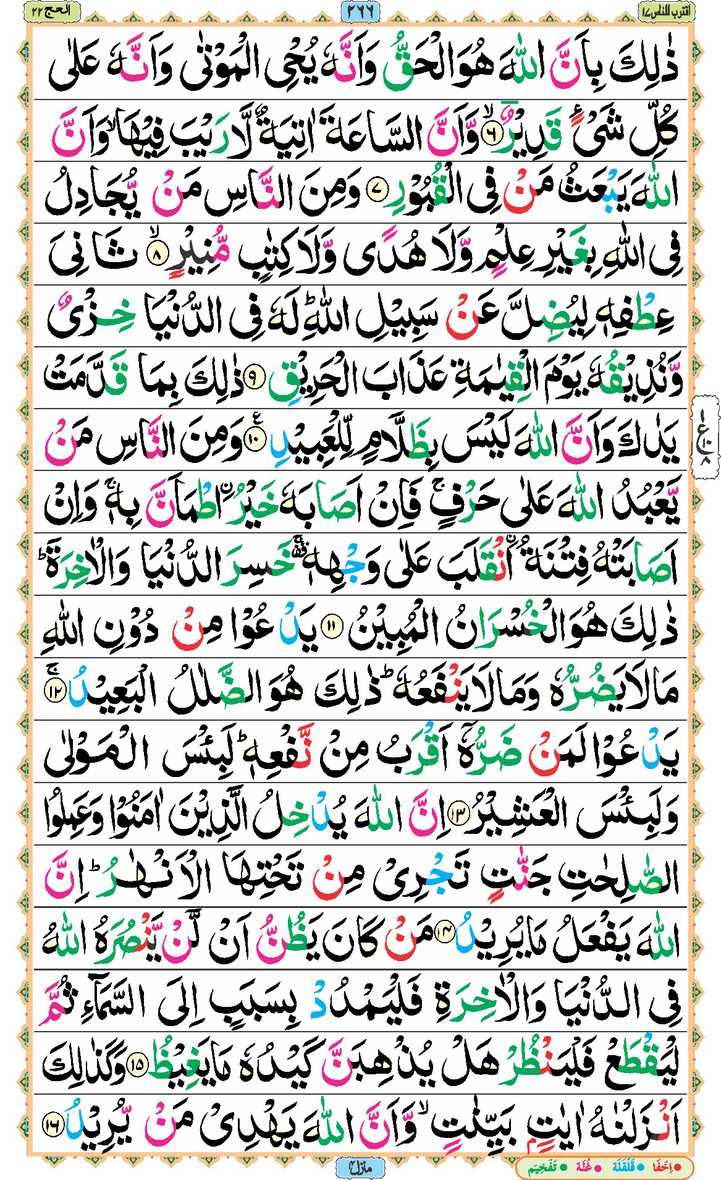 اقترب للناس ١٧
٤٦٦
الحج ٢٢
ذٰلِكَ بِاَنَّ اللّٰهَ هُوَ الْحَقُّ وَاَنَّهٗ يُحْيِ الْمَوْتٰى وَاَنَّهٗ عَلٰى
كُلِّ شَيْءٍ قَدِيْرٌۙ ﴿۶﴾ وَّاَنَّ السَّاعَةَ اٰتِيَةٌ لَّا رَيْبَ فِيْهَاۙ وَاَنَّ
اللّٰهَ يَبْعَثُ مَنْ فِي الْقُبُوْرِ ﴿۷﴾ وَمِنَ النَّاسِ مَنْ يُّجَادِلُ
فِي اللّٰهِ بِغَيْرِ عِلْمٍ وَّلَا هُدًى وَّلَا كِتٰبٍ مُّنِيْرٍۙ ﴿۸﴾ ثَانِيَ
عِطْفِهٖ لِيُضِلَّ عَنْ سَبِيْلِ اللّٰهِؕ لَهٗ فِي الدُّنْيَا خِزْيٌ
وَّنُذِيْقُهٗ يَوْمَ الْقِيٰمَةِ عَذَابَ الْحَرِيْقِ ﴿۹﴾ ذٰلِكَ بِمَا قَدَّمَتْ
يَدٰكَ وَاَنَّ اللّٰهَ لَيْسَ بِظَلَّامٍ لِّلْعَبِيْدِ ﴿۱۰﴾ وَمِنَ النَّاسِ مَنْ
يَّعْبُدُ اللّٰهَ عَلٰى حَرْفٍۚ فَاِنْ اَصَابَهٗ خَيْرُ اۨطْمَاَنَّ بِهٖۚ وَاِنْ
اَصَابَتْهُ فِتْنَةُ اۨنْقَلَبَ عَلٰى وَجْهِهٖۚ خَسِرَ الدُّنْيَا وَالْاٰخِرَةَؕ
ذٰلِكَ هُوَ الْخُسْرَانُ الْمُبِيْنُ ﴿۱۱﴾ يَدْعُوْا مِنْ دُوْنِ اللّٰهِ
مَا لَا يَضُرُّهٗ وَمَا لَا يَنْفَعُهٗؕ ذٰلِكَ هُوَ الضَّلٰلُ الْبَعِيْدُۚ ﴿۱۲﴾
يَدْعُوْا لَمَنْ ضَرُّهٗۤ اَقْرَبُ مِنْ نَّفْعِهٖؕ لَبِئْسَ الْمَوْلٰى
وَلَبِئْسَ الْعَشِيْرُ ﴿۱۳﴾ اِنَّ اللّٰهَ يُدْخِلُ الَّذِيْنَ اٰمَنُوْا وَعَمِلُوا
الصّٰلِحٰتِ جَنّٰتٍ تَجْرِيْ مِنْ تَحْتِهَا الْاَنْهٰرُؕ اِنَّ
اللّٰهَ يَفْعَلُ مَا يُرِيْدُ ﴿۱۴﴾ مَنْ كَانَ يَظُنُّ اَنْ لَّنْ يَّنْصُرَهُ اللّٰهُ
فِي الدُّنْيَا وَالْاٰخِرَةِ فَلْيَمْدُدْ بِسَبَبٍ اِلَى السَّمَآءِ ثُمَّ
لْيَقْطَعْ فَلْيَنْظُرْ هَلْ يُذْهِبَنَّ كَيْدُهٗ مَا يَغِيْظُ ﴿۱۵﴾ وَكَذٰلِكَ
اَنْزَلْنٰهُ اٰيٰتٍۭ بَيِّنٰتٍۙ وَّاَنَّ اللّٰهَ يَهْدِيْ مَنْ يُّرِيْدُ ﴿۱۶﴾
منزل ٤
اِخفَا قَلْقَلَه غُنَّه تَفْخِيْم